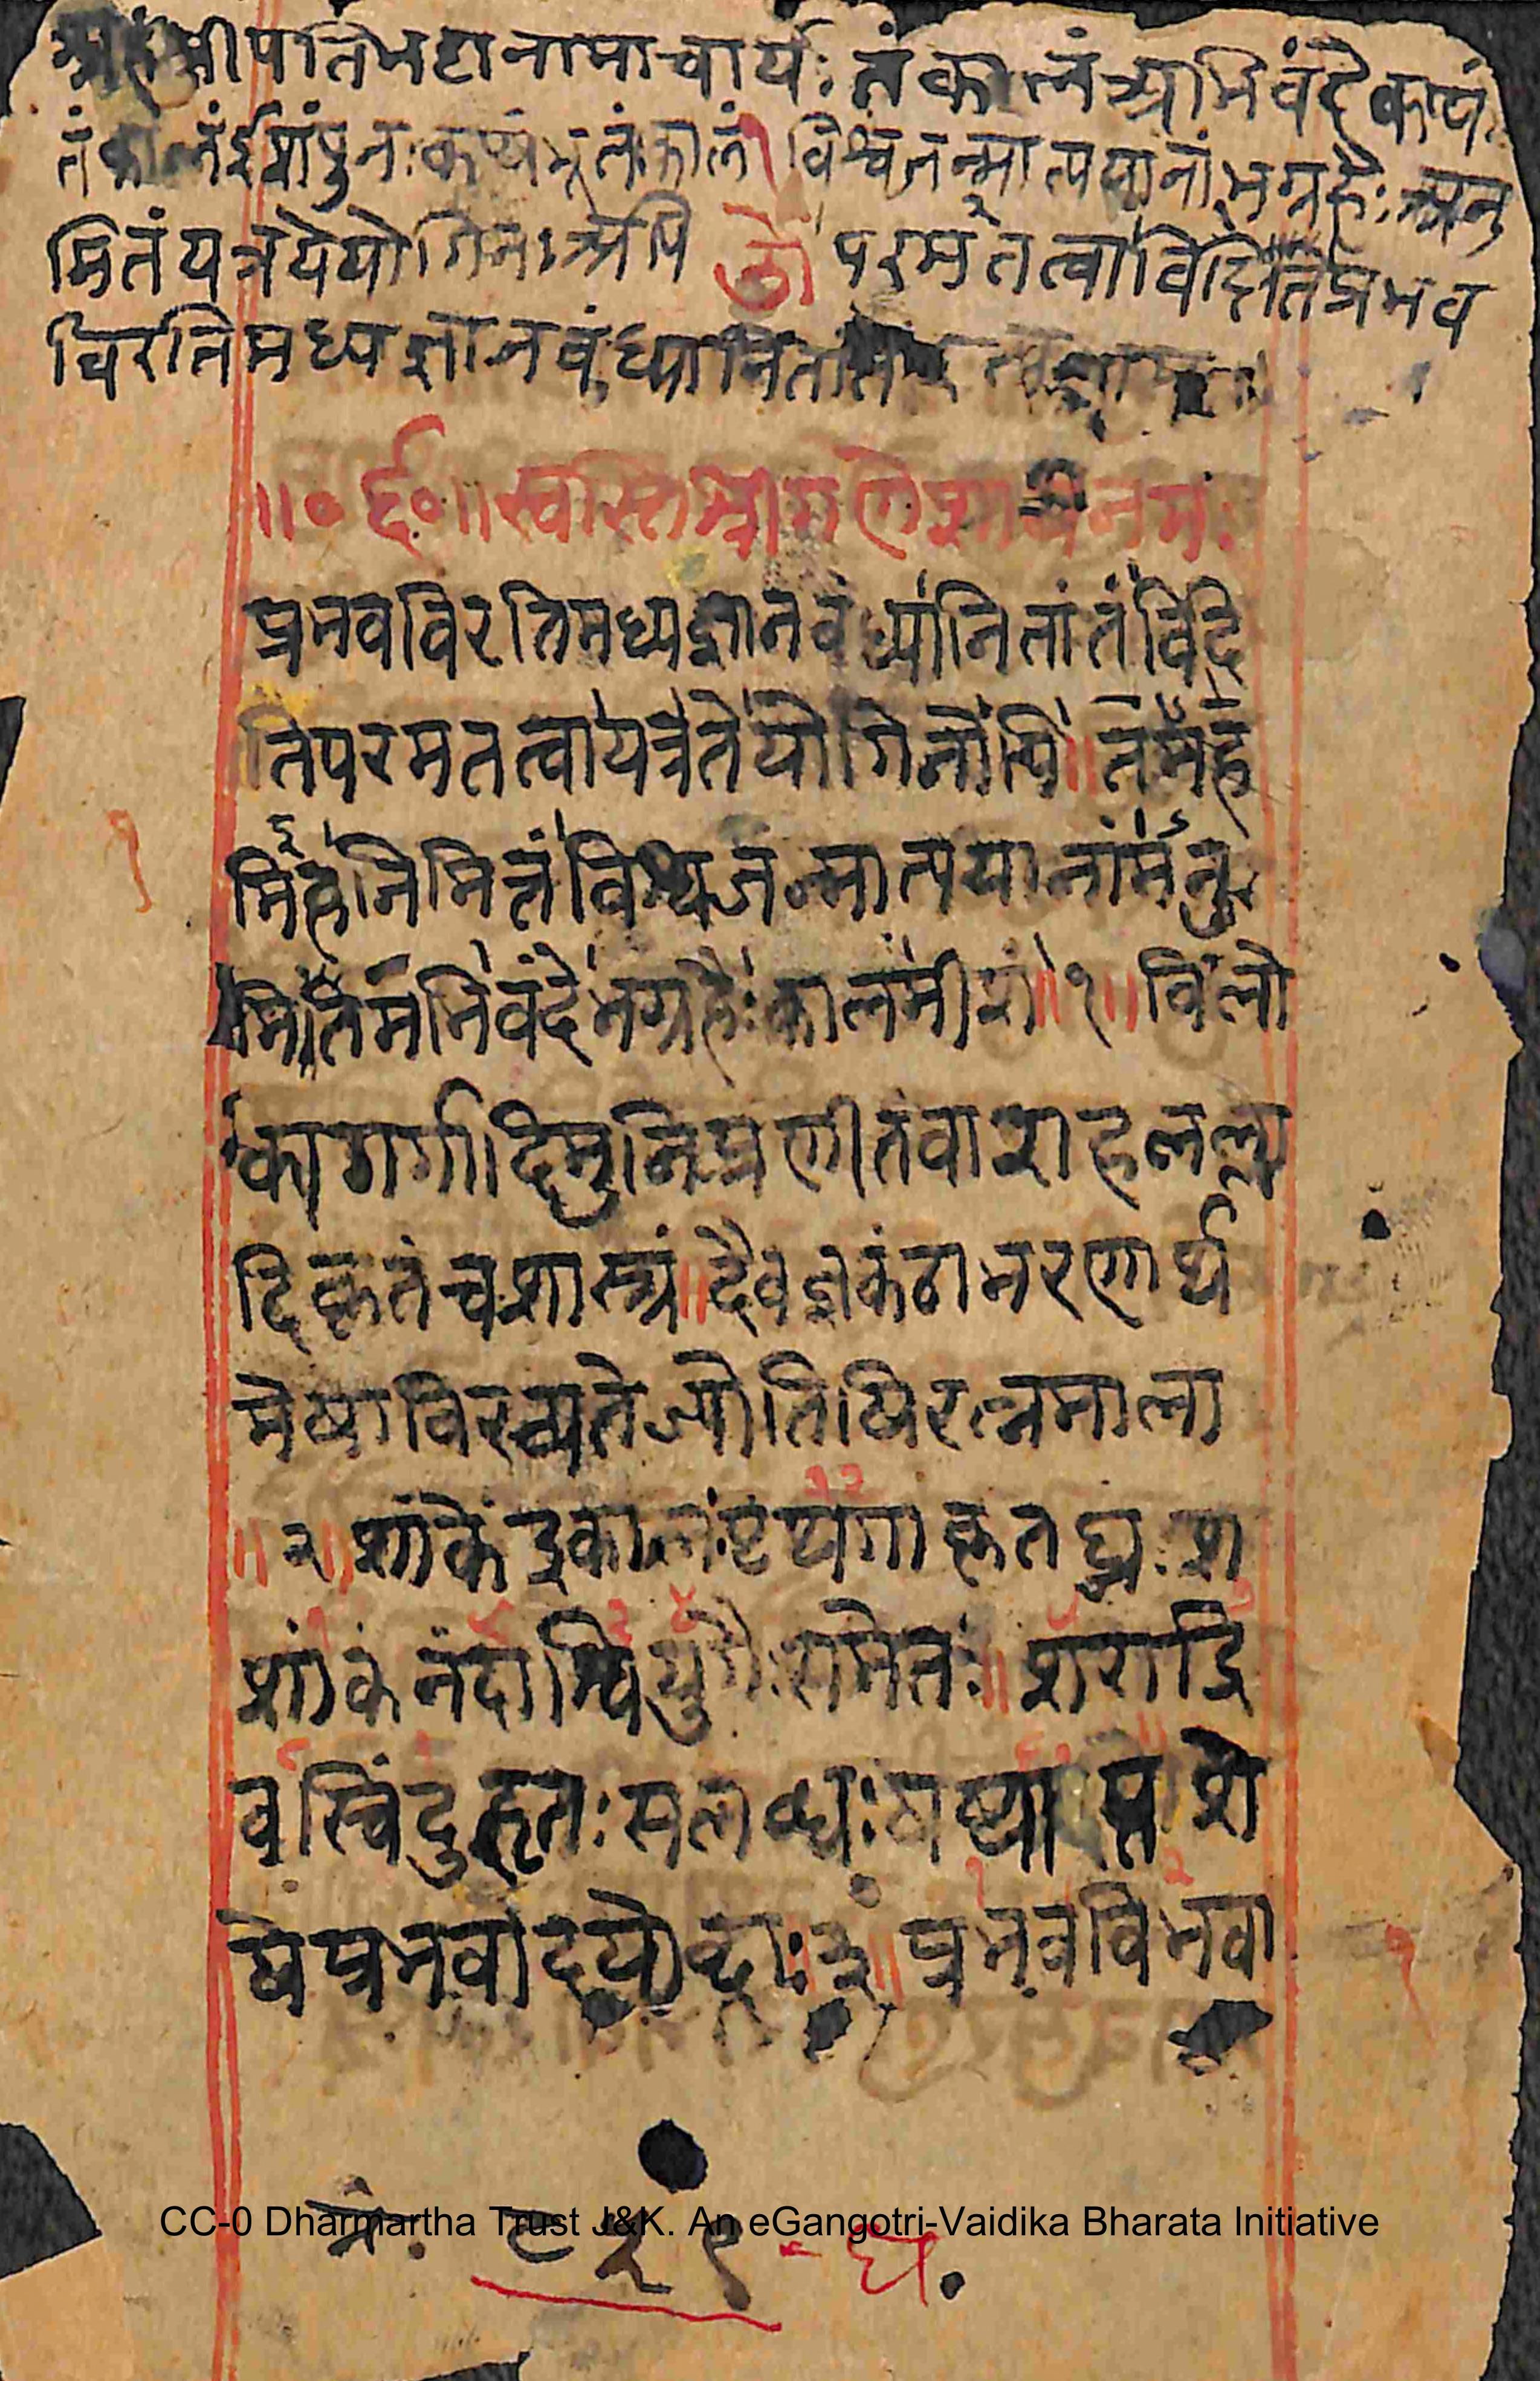 अहं श्रीपतिभट्टनामाचार्यः तं कालं अभिवंदे कथं
तं कालं ईशं पुनः कथंभूतं कालं विश्वजन्मात्ययानां भग्रहैः अनु
मितं यत्र ये योगिनः अपि परमतत्वा विदंति प्रभव
विरतिमध्यज्ञानवंध्या नितांतं
॥०ई०॥स्वस्ति श्रीगणेशाय नमः
प्रभवविरतिमध्यज्ञानवंध्या नितांतं विदं
ति परमतत्वा यत्र ते योगिनोपि॥ तमह
मिह निमित्तं विश्वजन्मात्ययानामनु
मितमभिवंदे भग्रहैः कालमीशं॥१॥ विलो
क्य गर्गादिमुनिप्रणीतं वाराहलल्ला
दिकृतं च शास्त्रं॥ दैवज्ञकंठाभरणार्थ
मेषा विरच्यते ज्योतिषिरत्नमाला
॥२॥ शाकेंद्रकालः पृथगाकृतघ्नः श
१२
शांकनंदाश्वियुगैः समेतः॥ शराद्रि
वस्विंदुहृतः सलब्धः षष्ट्याप्तशे
षे प्रभवादयोब्दाः॥३॥ प्रभवविभवा
१
१
नं. ८२९-घ.
CC-0 Dharmartha Trust J&K. An eGangotri-Vaidika Bharata Initiative